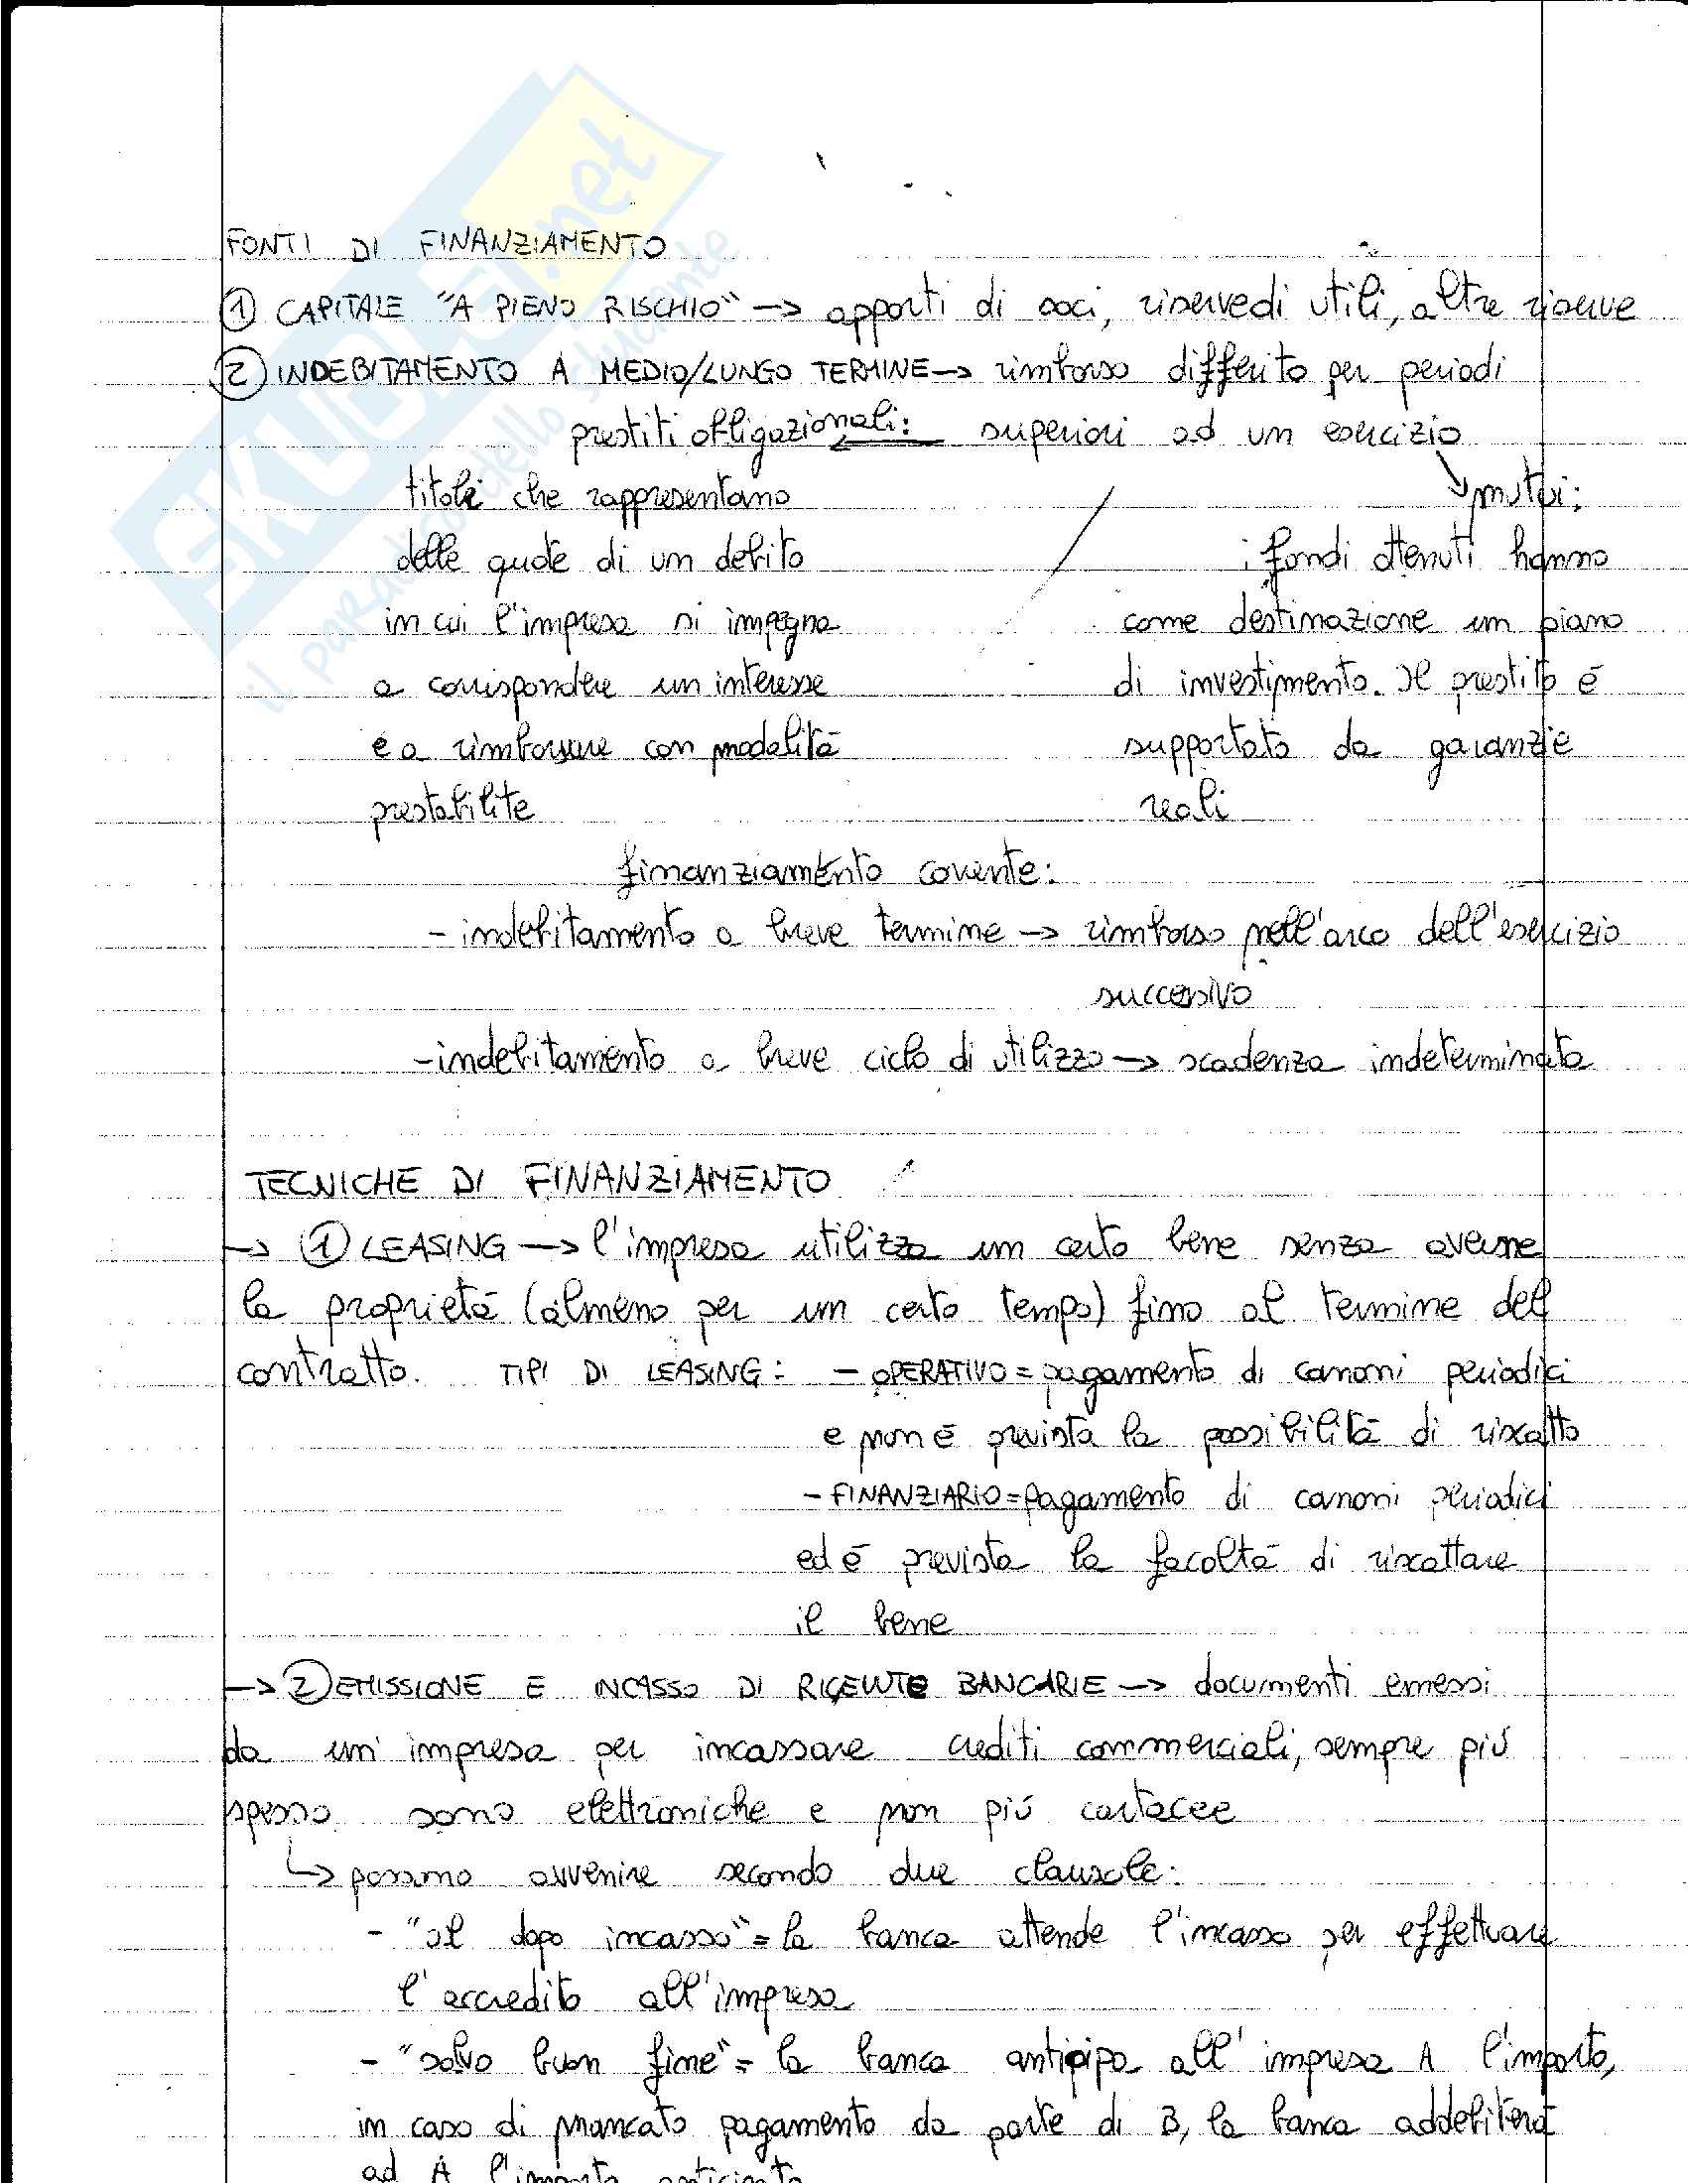 SKUOLA.net
il paradiso dello studente
FONTI DI FINANZIAMENTO
① CAPITALE "A PIENO RISCHIO" → apporti di soci, riserve di utili, altre riserve
② INDEBITAMENTO A MEDIO/LUNGO TERMINE → rimborso differito per periodi
superiori ad un esercizio
prestiti obbligazionali:
titoli che rappresentano
delle quote di un debito
in cui l'impresa si impegna
a corrispondere un interesse
e a rimborsare con modalità
prestabilite
mutui:
i fondi ottenuti hanno
come destinazione un piano
di investimento. Il prestito è
supportato da garanzie
reali
finanziamento corrente:
- indebitamento a breve termine → rimborso nell'arco dell'esercizio
successivo
- indebitamento a breve ciclo di utilizzo → scadenza indeterminata
TECNICHE DI FINANZIAMENTO
→ ① LEASING → l'impresa utilizza un certo bene senza averne
la proprietà (almeno per un certo tempo) fino al termine del
contratto. TIPI DI LEASING: - OPERATIVO = pagamento di canoni periodici
e non è prevista la possibilità di riscatto
- FINANZIARIO = pagamento di canoni periodici
ed è prevista la facoltà di riscattare
il bene
→ ② EMISSIONE E INCASSO DI RICEVUTE BANCARIE → documenti emessi
da un'impresa per incassare crediti commerciali, sempre più
spesso sono elettroniche e non più cartacee
↳ possono avvenire secondo due clausole:
- "al dopo incasso" = la banca attende l'incasso per effettuare
l'accredito all'impresa
- "salvo buon fine" = la banca anticipa all'impresa A l'importo,
in caso di mancato pagamento da parte di B, la banca addebiterà
ad A l'importo anticipato